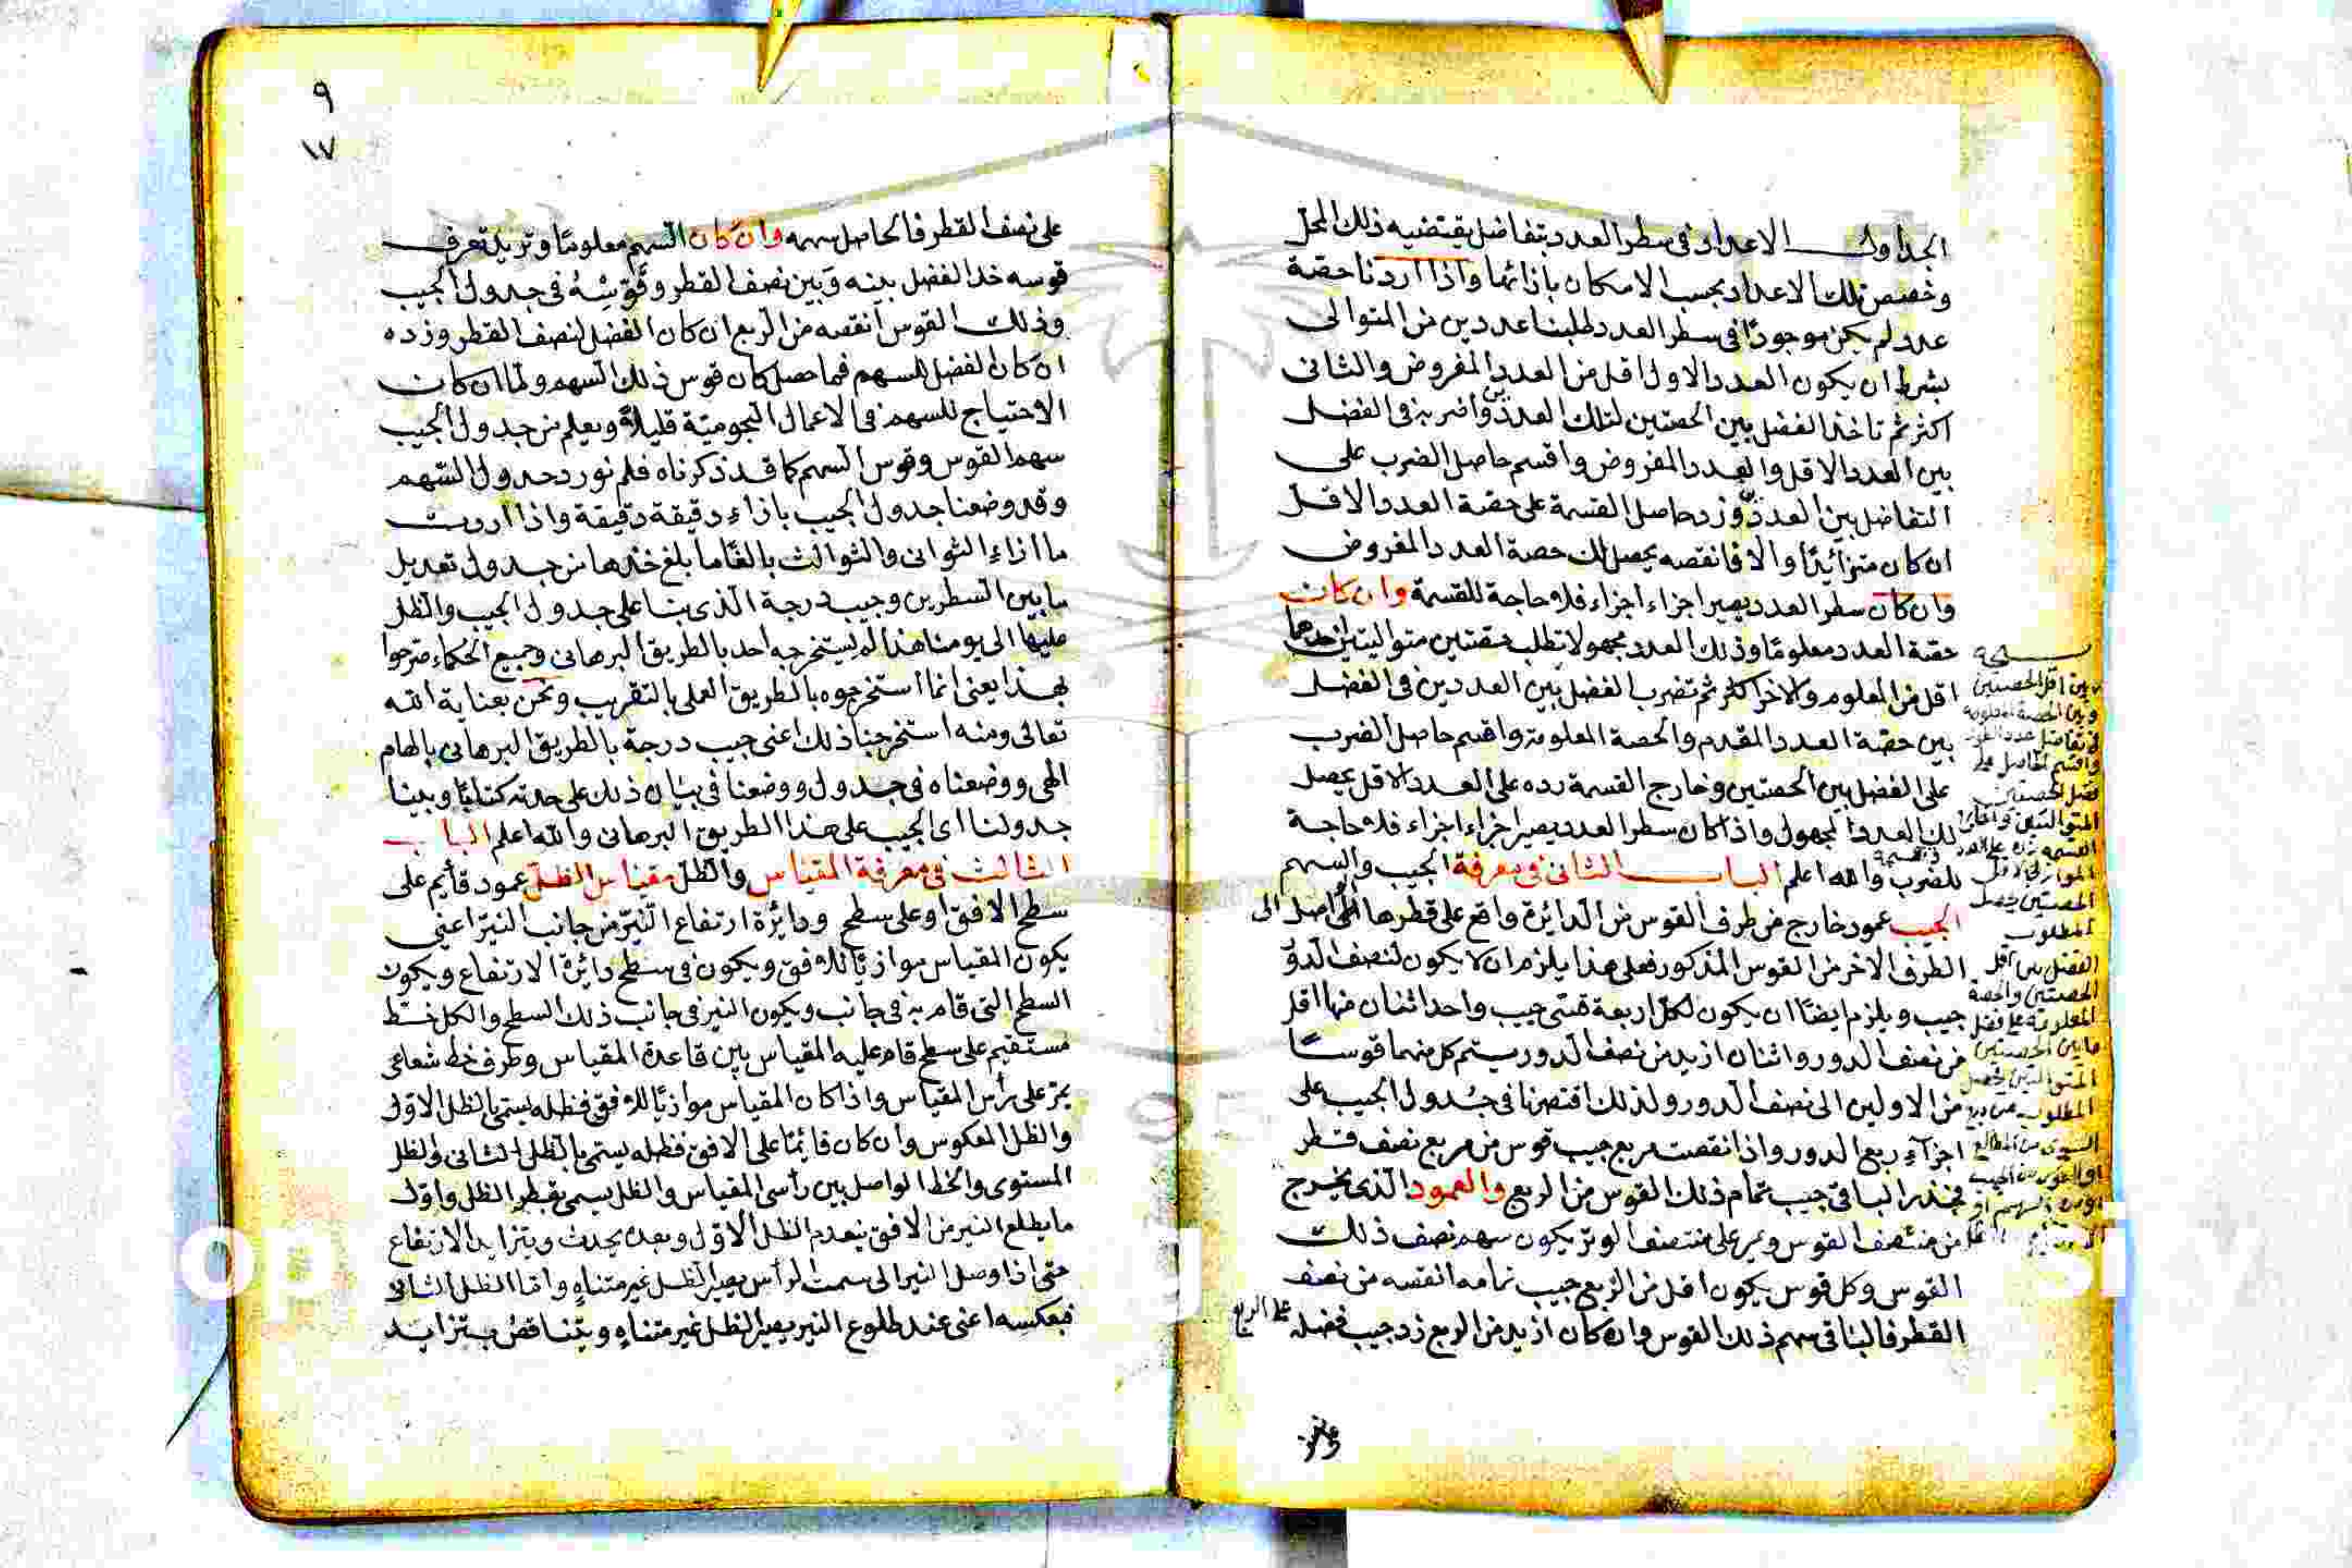 الجداول الاعداد فى سطر العدد بتفاضل يقتضيه ذلك المحل
وخصص تلك الاعداد بحسب الامكان بازائها واذا اردنا حصة
عدد لم يكن موجودًا فى سطر العدد طلبنا عددين من المتوالى
بشرط ان يكون العدد الاول اقل من العدد المفروض والثانى
اكثر ثم تاخذ الفضل بين الحصتين لتلك العددين واضربه فى الفضل
بين العدد الاقل والعدد المفروض واقسم حاصل الضرب على
التفاضل بين العددين وزد حاصل القسمة على حصة العدد الاقل
ان كان متزائيدًا والا فانقصه يحصل لك حصة العدد المفروض
وان كان سطر العدد يصير اجزاء اجزاء فلا حاجة للقسمة وان كانت
حصة العدد معلومًا وذلك العدد مجهولا تطلب حصتين متواليتين احدهما
اقل من المعلوم والاخر اكثر ثم تضرب الفضل بين العددين فى الفضل
بين حصة العدد المقدم والحصة المعلومة واقسم حاصل الضرب
على الفضل بين الحصتين وخارج القسمة زده على العدد الاقل يحصل
لك العدد المجهول واذا كان سطر العدد يصير اجزاء اجزاء فلا حاجة
للضرب والله اعلم الباب الثانى فى معرفة الجيب والسهم
الجيب عمود خارج من طرف القوس من الدائرة واقع على قطرها الواصل الى
الطرف الاخر من القوس المذكور فعلى هذا يلزم ان لا يكون لنصف الدور
جيب ويلزم ايضًا ان يكون لكل اربعة قسى جيب واحد اثنان منها اقل
من نصف الدور واثنان ازيد من نصف الدور يستم كل منهما قوسًا
من الاولين الى نصف الدور ولذلك اقتصرنا فى جدول الجيب على
اجزآء ربع الدور واذا نقصت مربع جيب قوس من مربع نصف قطر
فجذر الباقى جيب تمام ذلك القوس من الربع والعمود الذى يخرج
من منتصف القوس ويمر على منتصف الوتر يكون سهم نصف ذلك
القوس وكل قوس يكون اقل من الربع جيب تمامه انقصه من نصف
القطر فالباقى سهم ذلك القوس وان كان ازيد من الربع زد جيب فضله
على الربع
بين اقل الحصتين
وبين الحصة المعلومة
واقسم الحاصل على
فضل الحصتين
المتواليتين
الحصتين يحصل
المطلوب
الفضل بين اقل
الحصتين والحصة
المعلومة على فضل
ما بين الحصتين
المتواليتين يحصل
المطلوب
٩
١٧
على نصف القطر فالحاصل سهمه وان كان السهم معلومًا وتريد تعرف
قوسه خذ الفضل بينه وبين نصف القطر وقوّسْهُ فى جدول الجيب
وذلك القوس انقصه من الربع ان كان الفضل لنصف القطر وزده
ان كان الفضل للسهم فما حصل كان قوس ذلك السهم ولما ان كان
الاحتياج للسهم فى الاعمال النجومية قليلاً ويعلم من جدول الجيب
سهم القوس وقوس السهم كما قد ذكرناه فلم نورد جدول السهم
وقد وضعنا جدول الجيب بازاء دقيقة دقيقة واذا اردت
ما ازاء الثوانى والثوالث بالغًا ما بلغ خذها من جدول تعديل
ما بين السطرين وجيب درجة الذى بنا على جدول الجيب والظل
عليها الى يومنا هذا لم يستخرجه احد بالطريق البرهانى وجميع الحكماء صرحوا
بهذا يعنى انما استخرجوه بالطريق العملى بالتقريب ونحن بعناية الله
تعالى ومنه استخرجنا ذلك اعنى جيب درجة بالطريق البرهانى بالهام
الهى ووضعناه فى جدول ووضعنا فى بيان ذلك على حدته كتابًا وبينا
جدولنا اى الجيب على هذا الطريق البرهانى والله اعلم الباب
الثالث فى معرفة المقياس والظل مقياس الظل عمود قائم على
سطح الافق او على سطح ودائرة ارتفاع النيّر من جانب النيّر اعنى
يكون المقياس موازيًا للافق ويكون فى سطح دايرة الارتفاع ويكون
السطح التى قام به فى جانب ويكون النير فى جانب ذلك السطح والكل خط
مستقيم على سطح قام عليه المقياس بين قاعدة المقياس وطرف خط شعاعى
يمرّ على رأس المقياس واذا كان المقياس موازيًا للافق فظله يسمى بالظل الاوّل
والظل المعكوس وان كان قائيمًا على الافق فظله يستمى بالظل الثانى والظل
المستوى والخط الواصل بين رأسى المقياس والظل يسمى بقطر الظل واوّل
ما يطلع النير من الافق ينعدم الظل الاوّل وبعده يحدث ويتزايد الارتفاع
حتى اذا وصل النير الى سمت الرأس يصير الظل غير متناهٍ واما الظل الثانى
فبعكسه اعنى عند طلوع النير يصير الظل غير متناهٍ ويتناقص بتزايد